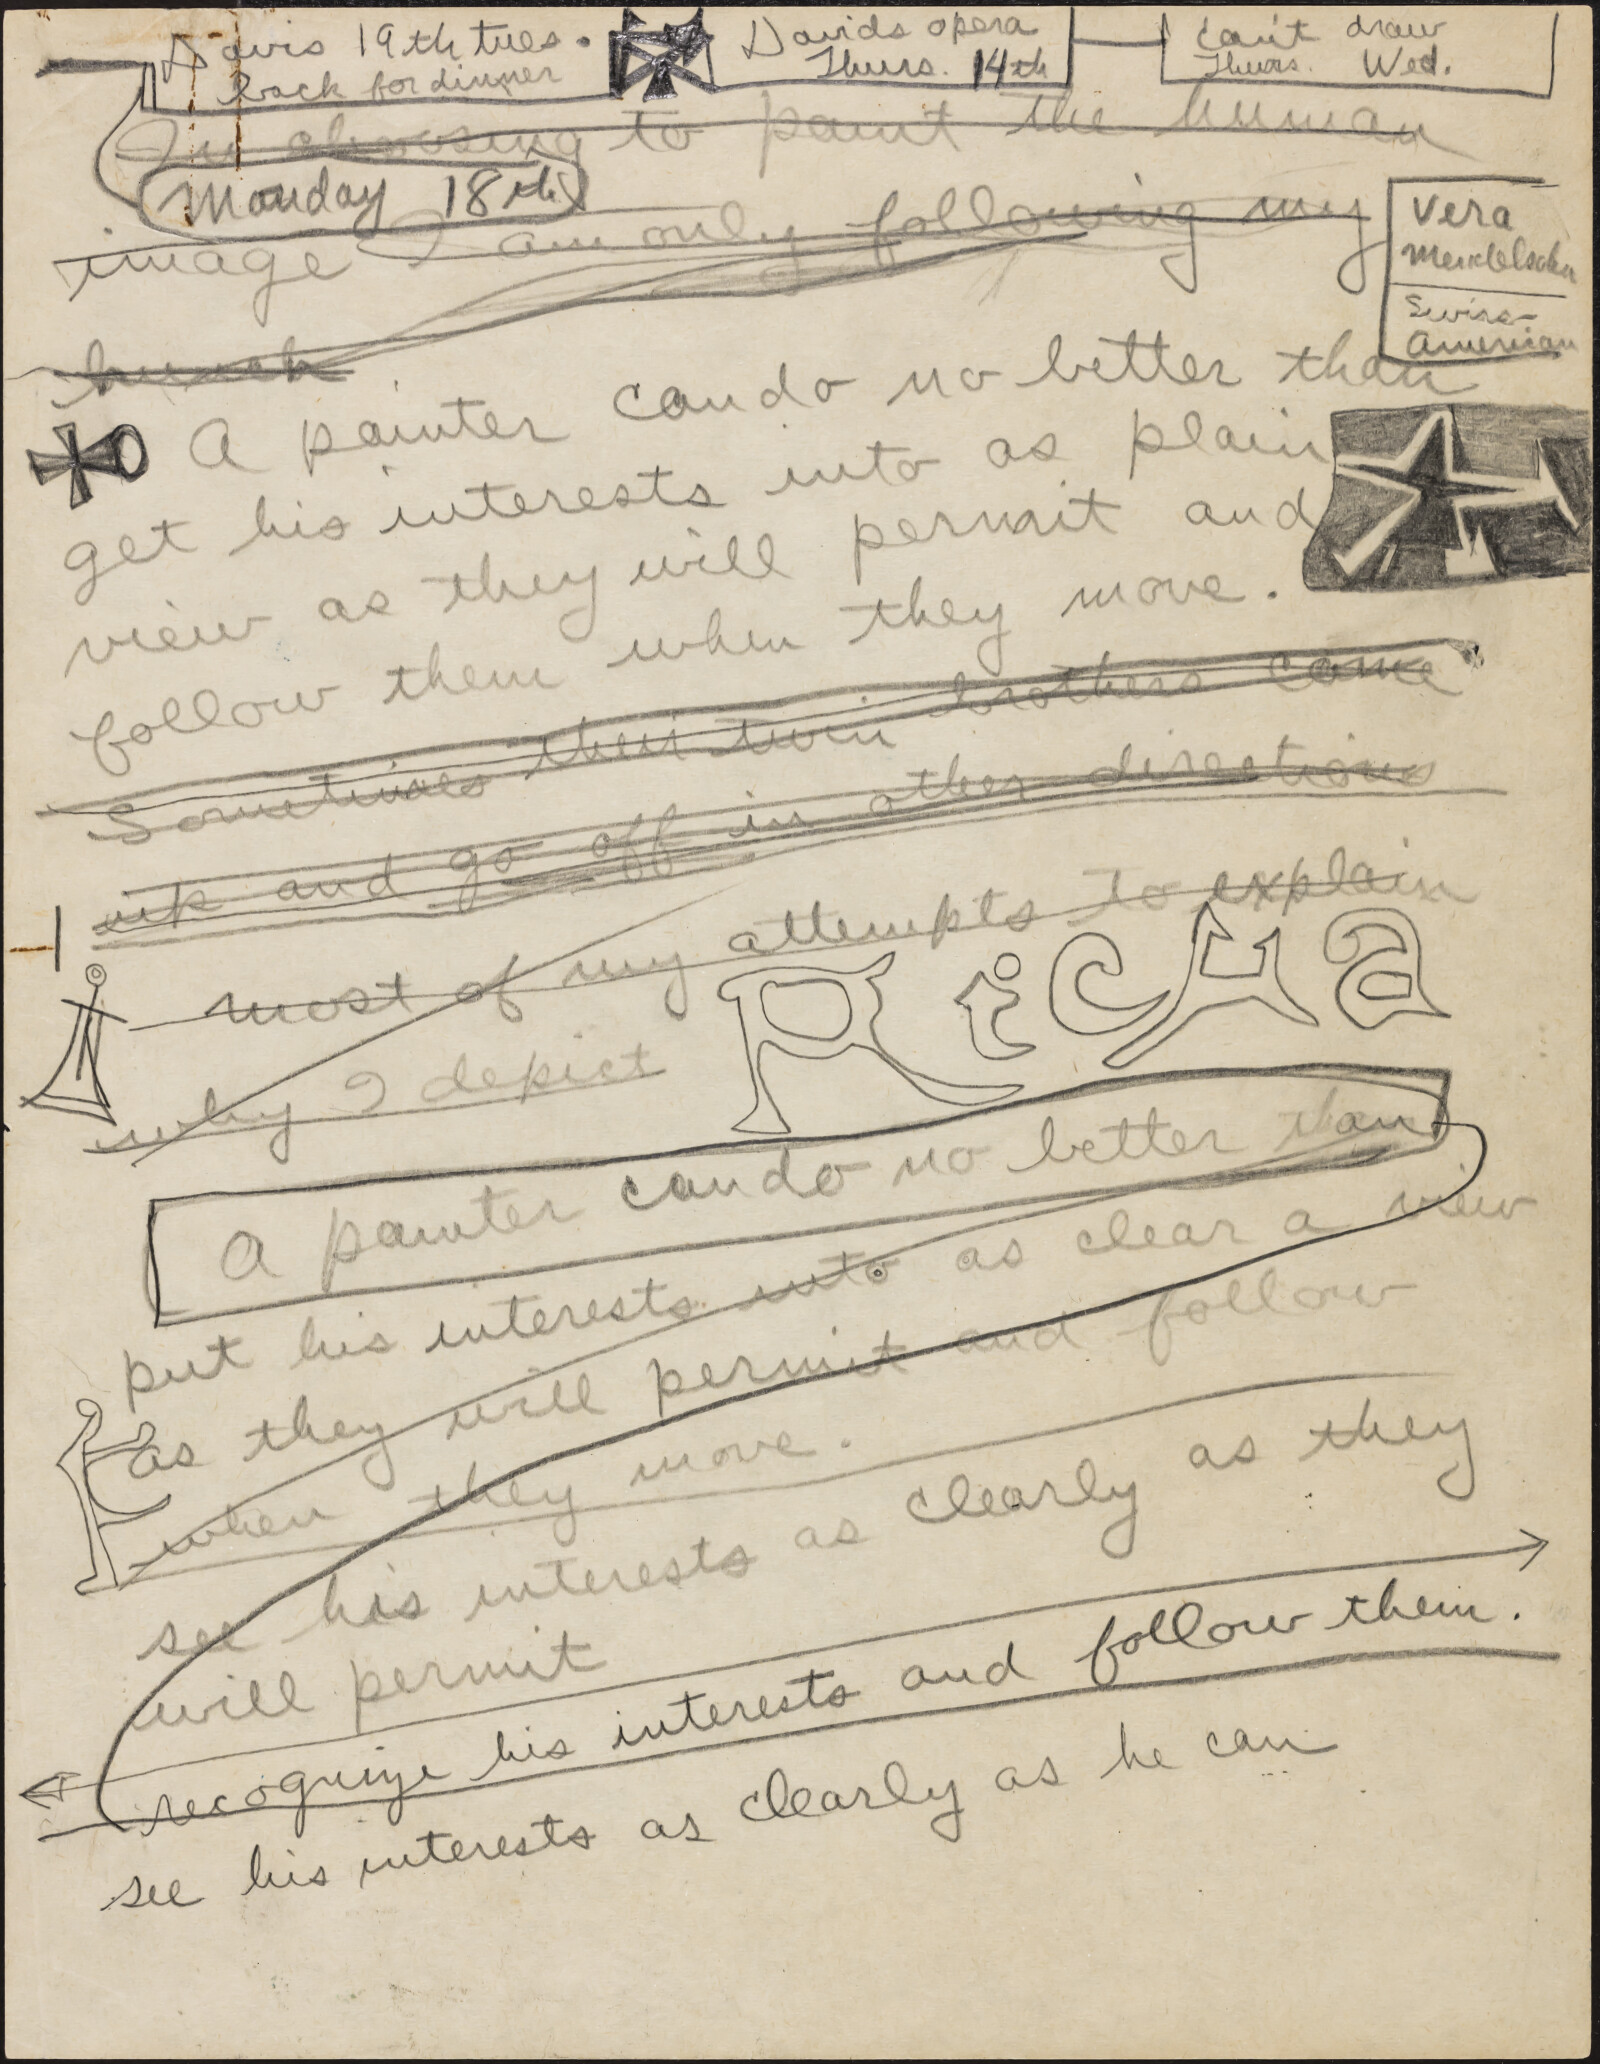 Davis 19th tues.
back for dinner
Davids opera
Thurs. 14th
can't draw
Thurs. Wed.
In choosing to paint the human
Monday 18th
image I am only following my
hunch
Vera
Mendelsohn
Swiss-
American
A painter can do no better than
get his interests into as plain
view as they will permit and
follow them when they move.
Sometimes their twin brothers come
up and go off in other directions
most of my attempts to explain
why I depict
RiCHa
A painter can do no better than
put his interests into as clear a view
as they will permit and follow
when they move.
see his interests as clearly as they
will permit
recognize his interests and follow them.
see his interests as clearly as he can